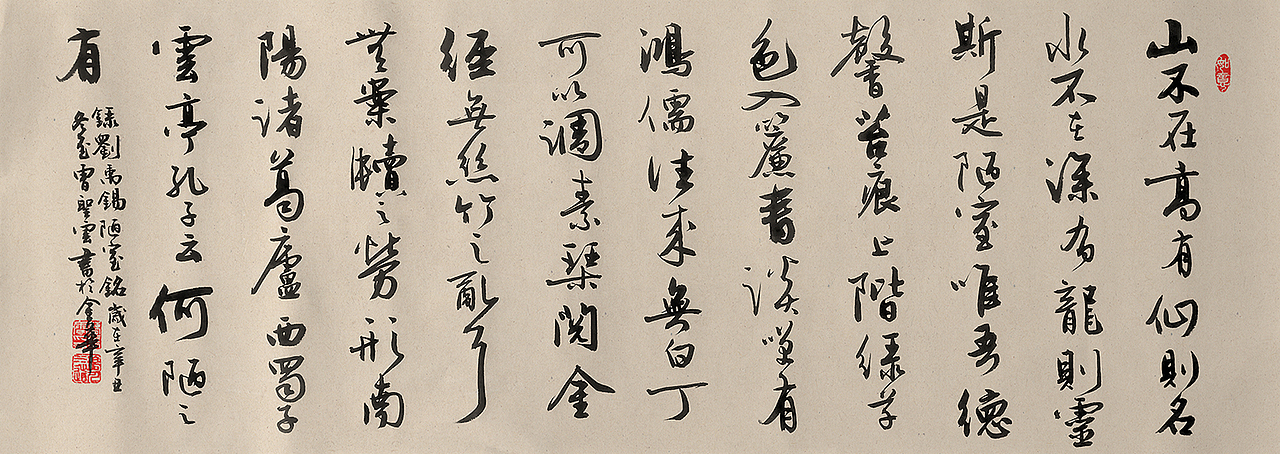 如意
山不在高有仙則名
水不在深有龍則靈
斯是陋室唯吾德
馨苔痕上階綠草
色入簾書談笑有
鴻儒往來無白丁
可以調素琴閱金
經無絲竹之亂耳
無案牘之勞形南
陽諸葛廬西蜀子
雲亭孔子云何陋之
有
錄劉禹錫陋室銘歲在辛丑
冬至曹聖雲書於金華